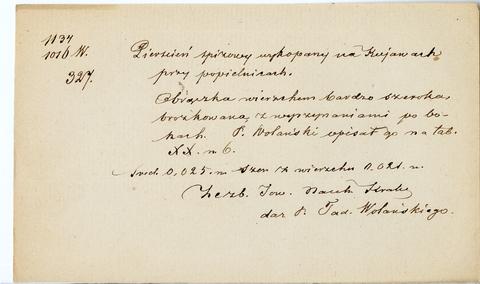 1134
1016 W.
327.
Pierścień spiżowy wykopany na Kujawach
przy popielnicach.
Obrączka wierzchem bardzo szeroka,
z wyrzynaniami po bo-
kach. P. Wolański opisał go na tab.
XX. n 6.
Śred. 0,025. m Szer. z wierzchu 0.021. m.
Ze zb. Tow. Nauk. Krak.
dar P. Tad. Wolańskiego.